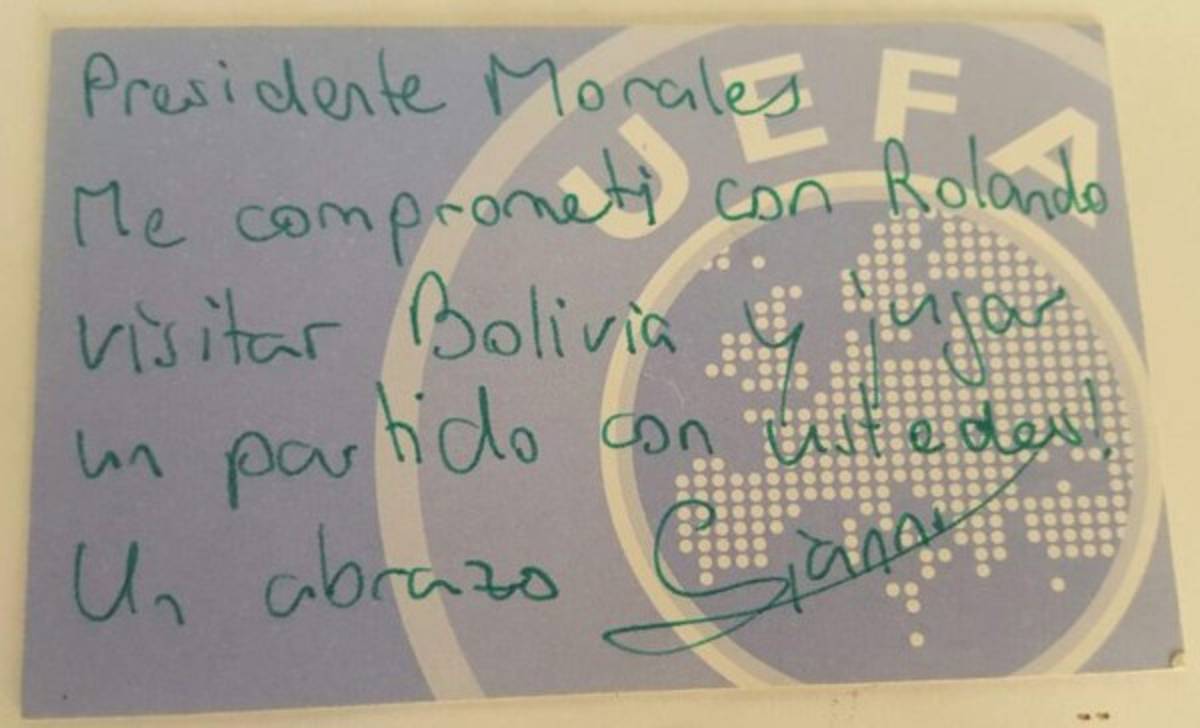 UEFA
Presidente Morales
Me comprometi con Rolando
visitar Bolivia y jugar
un partido con ustedes!
Un abrazo Gianni